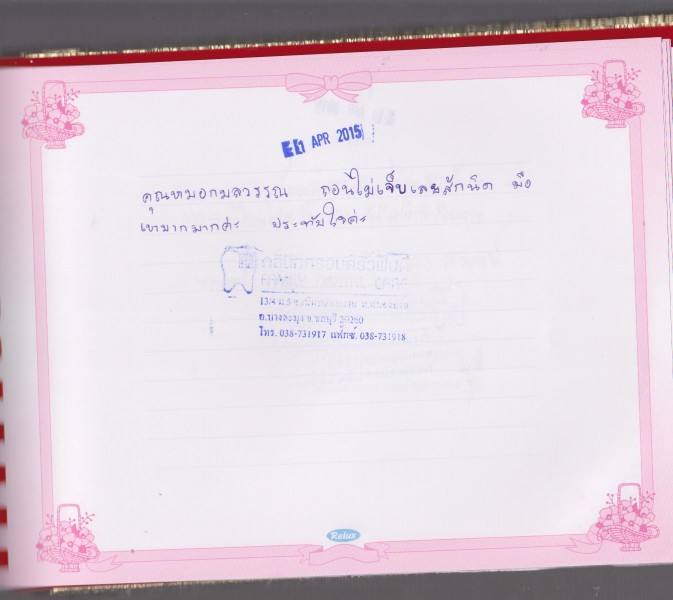 1 APR 2015
คุณหมอกมลวรรณ ถอนไม่เจ็บเลยสักนิด มือ
เบามากมากค่ะ ประทับใจค่ะ
อ.บางละมุง จ.ชลบุรี 20260
โทร. 038-731917 แฟ็กซ์. 038-731918
Relux